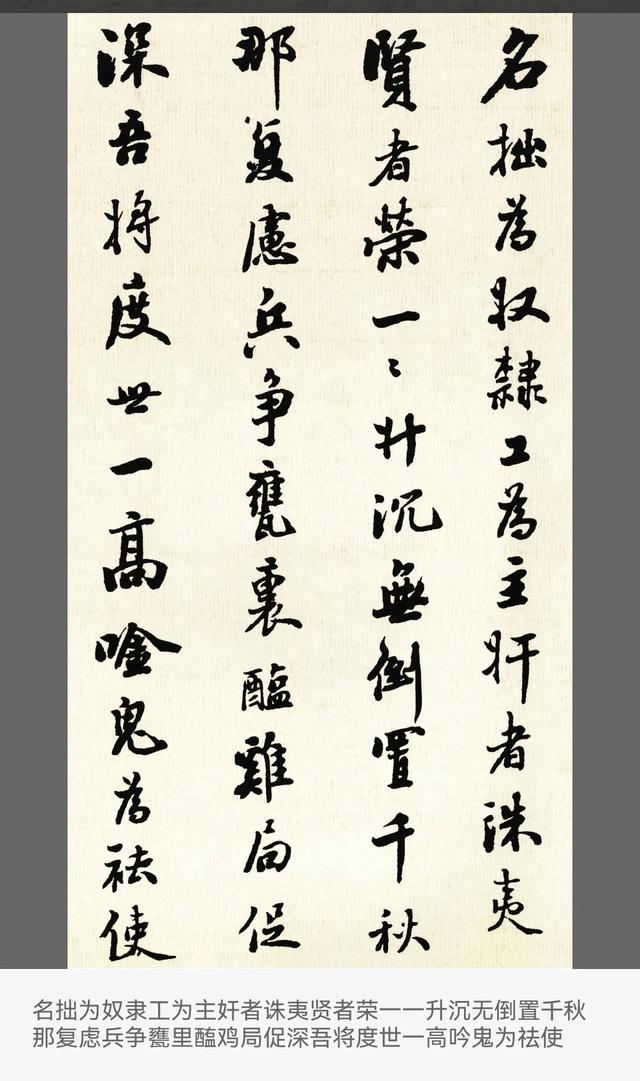 名拙為奴隸工為主奸者洙夷
賢者榮一〻升沉無倒置千秋
那复慮兵争甕裏醢雞局促
深吾将度世一高唫鬼為祛使
名拙为奴隶工为主奸者诛夷贤者荣一一升沉无倒置千秋
那复虑兵争甕里醢鸡局促深吾将度世一高吟鬼为祛使